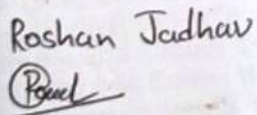 Roshan Jadhav